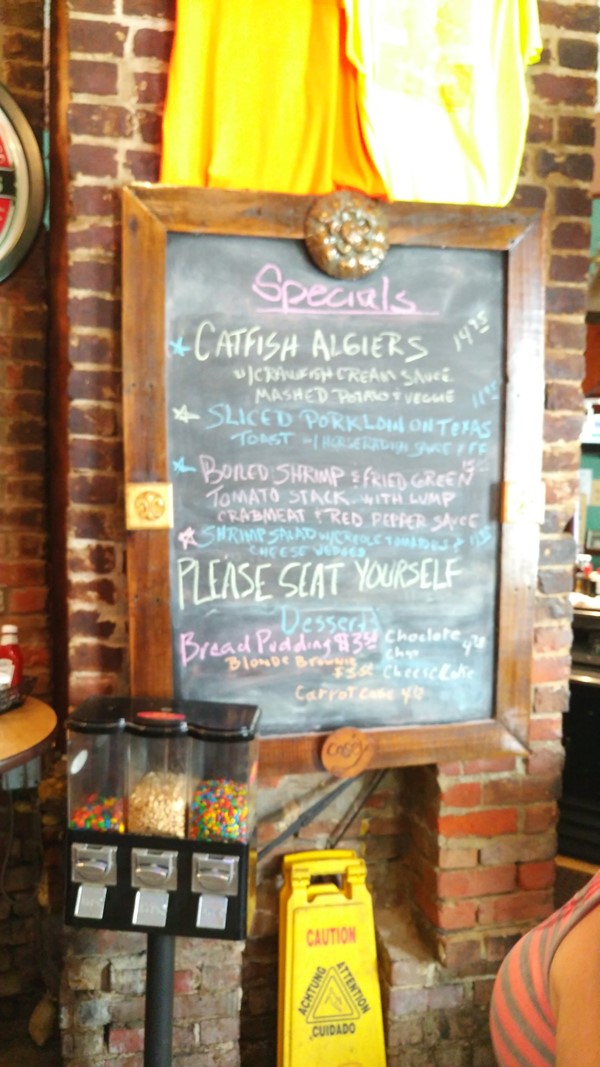 Specials
CATFISH ALGIERS 14.95
W/CRAWFISH CREAM SAUCE
MASHED POTATO & VEGGIE
SLICED PORK LOIN ON TEXAS
TOAST W/HORSERADISH SAUCE & FF
BOILED SHRIMP & FRIED GREEN
TOMATO STACK WITH LUMP
CRABMEAT & RED PEPPER SAUCE
SHRIMP SALAD W/CREOLE TOMATOES &
CHEESE
PLEASE SEAT YOURSELF
Desserts
Bread Pudding Choclate
BLONDE BROWNIE Chip
CheeseCake
Carrot Cake
CAUTION
ACHTUNG
ATTENTION
CUIDADO